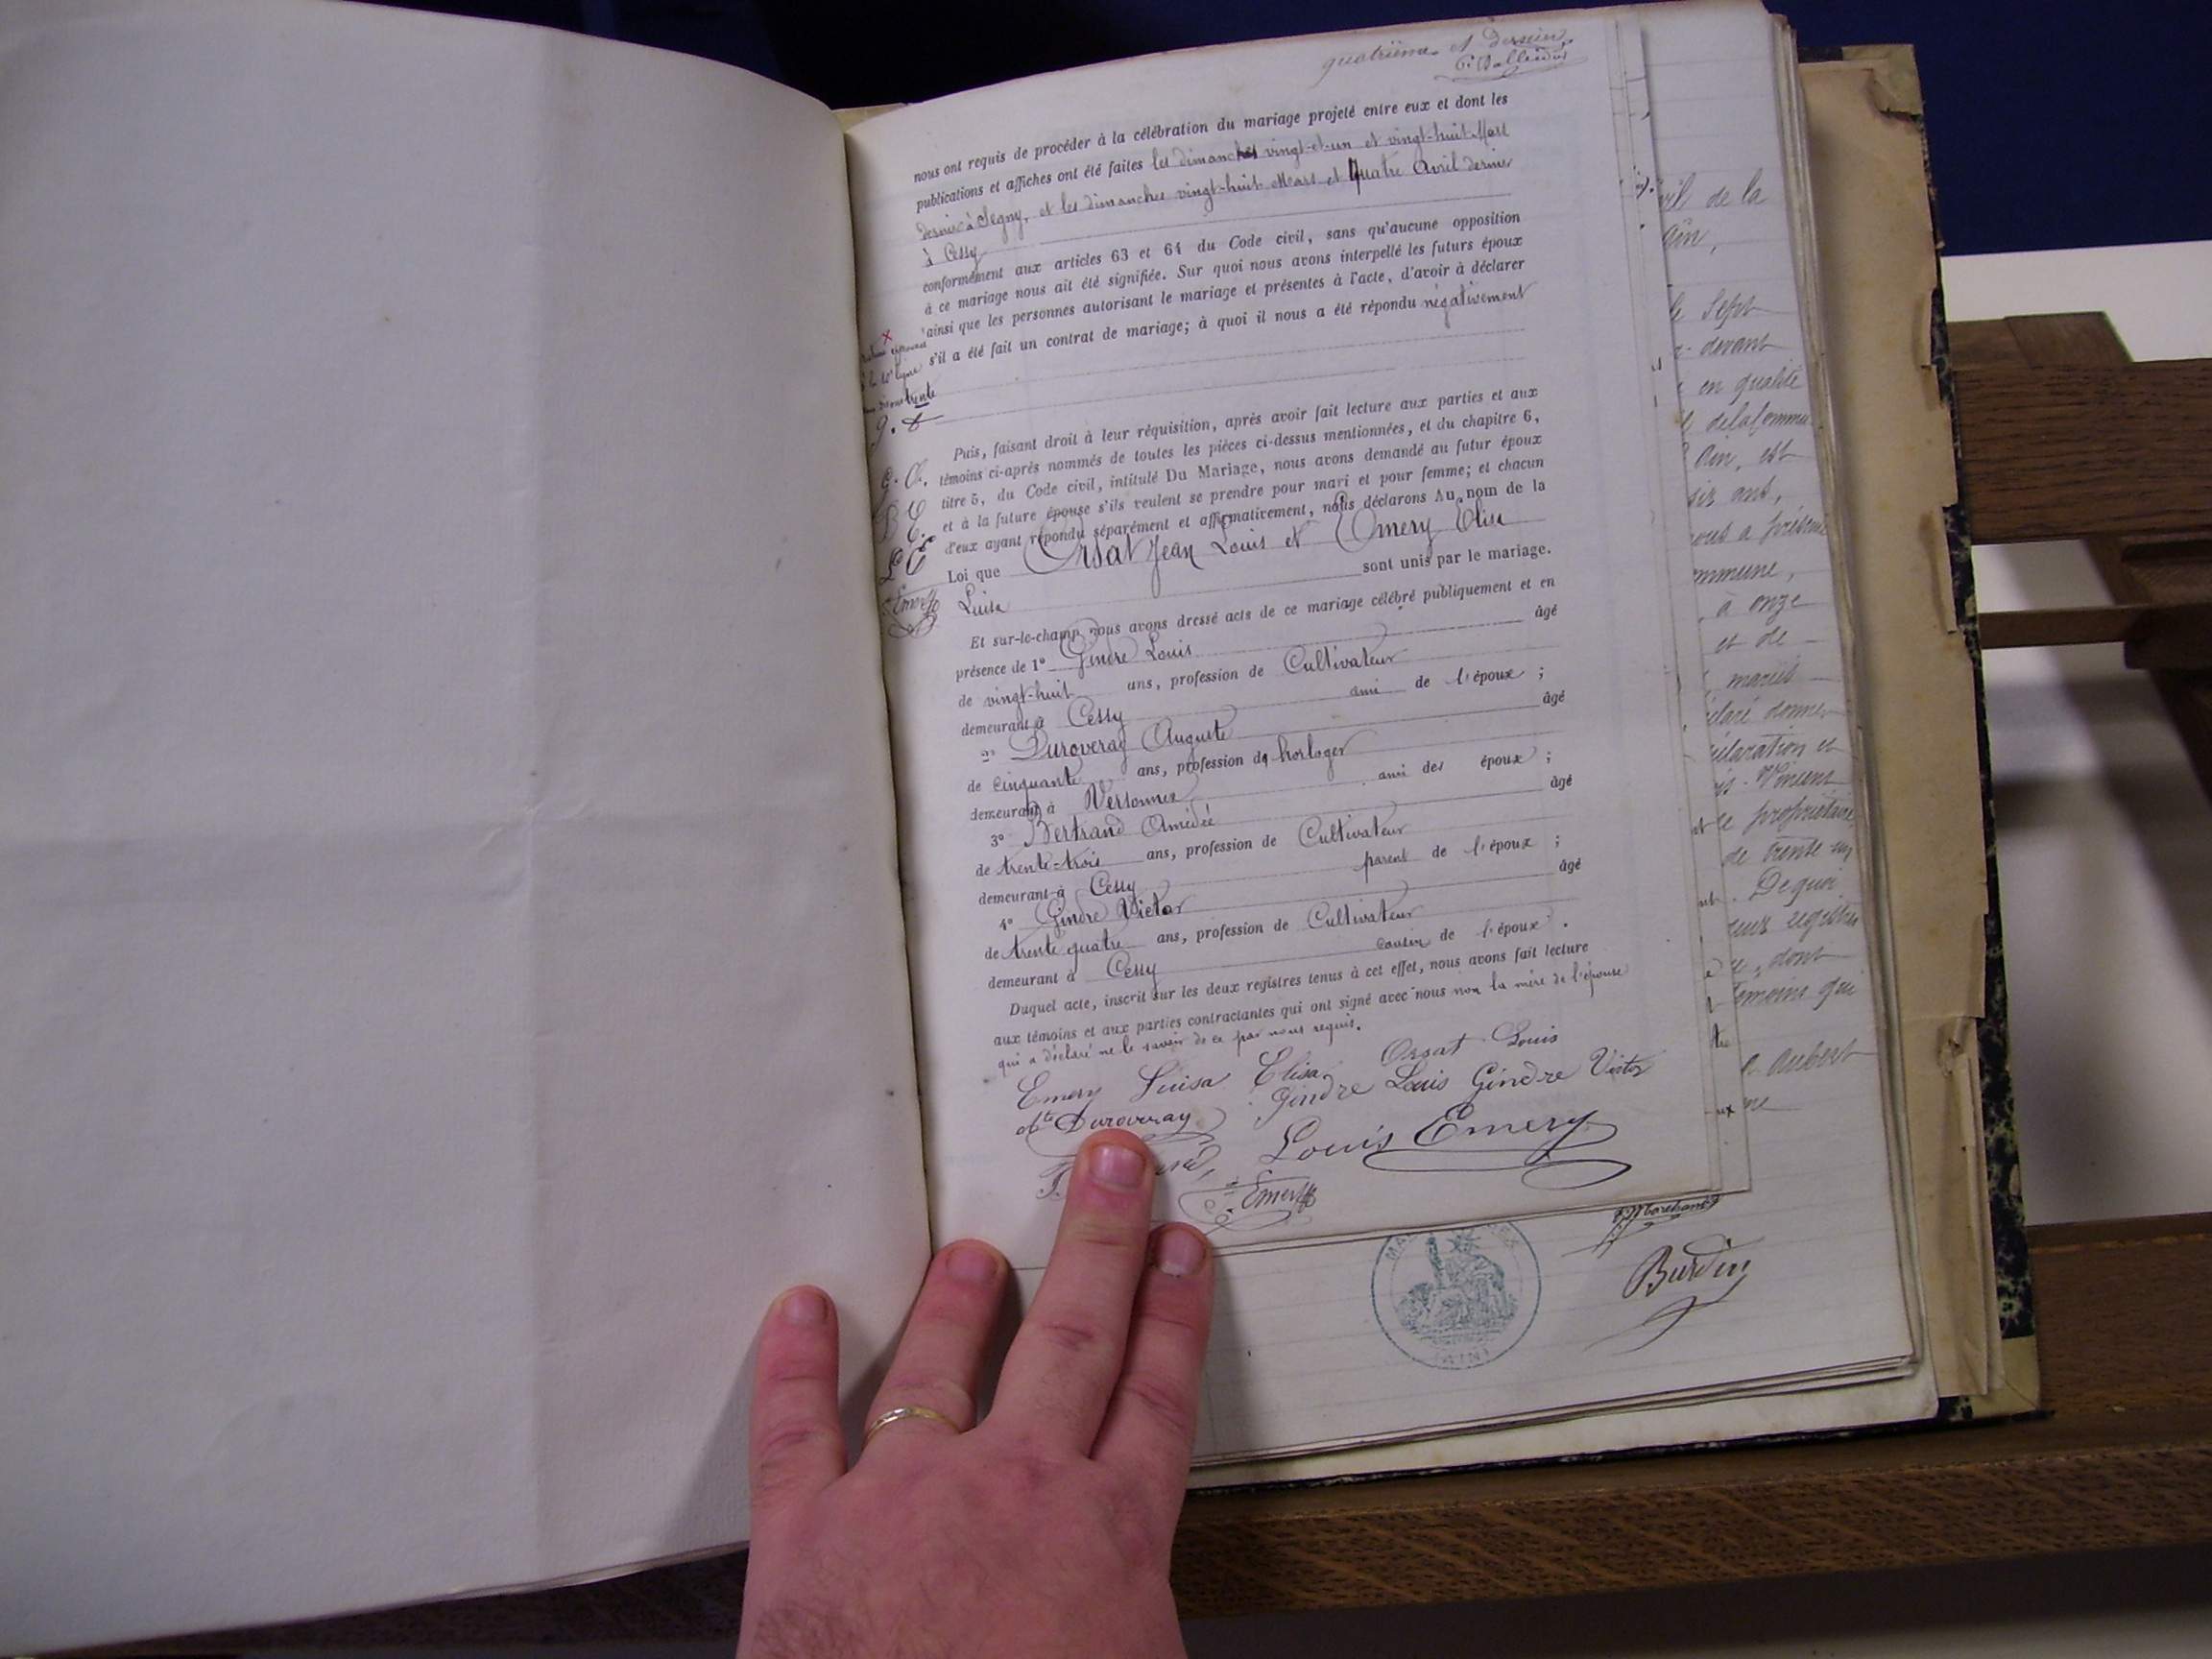 quatrième et dernier
nous ont requis de procéder à la célébration du mariage projeté entre eux et dont les
publications et affiches ont été faites les dimanches vingt-et-un et vingt-huit Mars
dernier à Segny, et les dimanches vingt-huit Mars et quatre Avril dernier
à Cessy
conformément aux articles 63 et 64 du Code civil, sans qu'aucune opposition
à ce mariage nous ait été signifiée. Sur quoi nous avons interpellé les futurs époux
ainsi que les personnes autorisant le mariage et présentes à l'acte, d'avoir à déclarer
s'il a été fait un contrat de mariage; à quoi il nous a été répondu négativement
trente
Puis, faisant droit à leur réquisition, après avoir fait lecture aux parties et aux
témoins ci-après nommés de toutes les pièces ci-dessus mentionnées, et du chapitre 6,
titre 5, du Code civil, intitulé Du Mariage, nous avons demandé au futur époux
et à la future épouse s'ils veulent se prendre pour mari et pour femme; et chacun
d'eux ayant répondu séparément et affirmativement, nous déclarons au nom de la
Loi que Orsat Jean Louis et Emery Elisa
Luisa sont unis par le mariage.
Et sur-le-champ nous avons dressé acte de ce mariage célébré publiquement et en
présence de 1° Gindre Louis âgé
de vingt-huit ans, profession de Cultivateur
demeurant à Cessy ami de l'époux ;
2° Duroveray Auguste âgé
de cinquante ans, profession de horloger
demeurant à Versonnex ami des époux ;
3° Bertrand Amédée âgé
de trente-trois ans, profession de Cultivateur
demeurant à Cessy parent de l'époux ;
4° Gindre Victor âgé
de trente quatre ans, profession de Cultivateur
demeurant à Cessy cousin de l'époux .
Duquel acte, inscrit sur les deux registres tenus à cet effet, nous avons fait lecture
aux témoins et aux parties contractantes qui ont signé avec nous non la mère de l'épouse
qui a déclaré ne le savoir de ce par nous requis.
Emery Luisa Elisa Orsat Louis
Duroveray Gindre Louis Gindre Victor
Louis Emery
Emery
G. O.
Emery
de la
Ain,
le Sept
devant
en qualité
Ain, est
six ans,
à onze
et de
mariés
donner
le propriétaire,
de trente-un
De quoi
dont
témoins qui
Aubert
Burdin
(AIN)